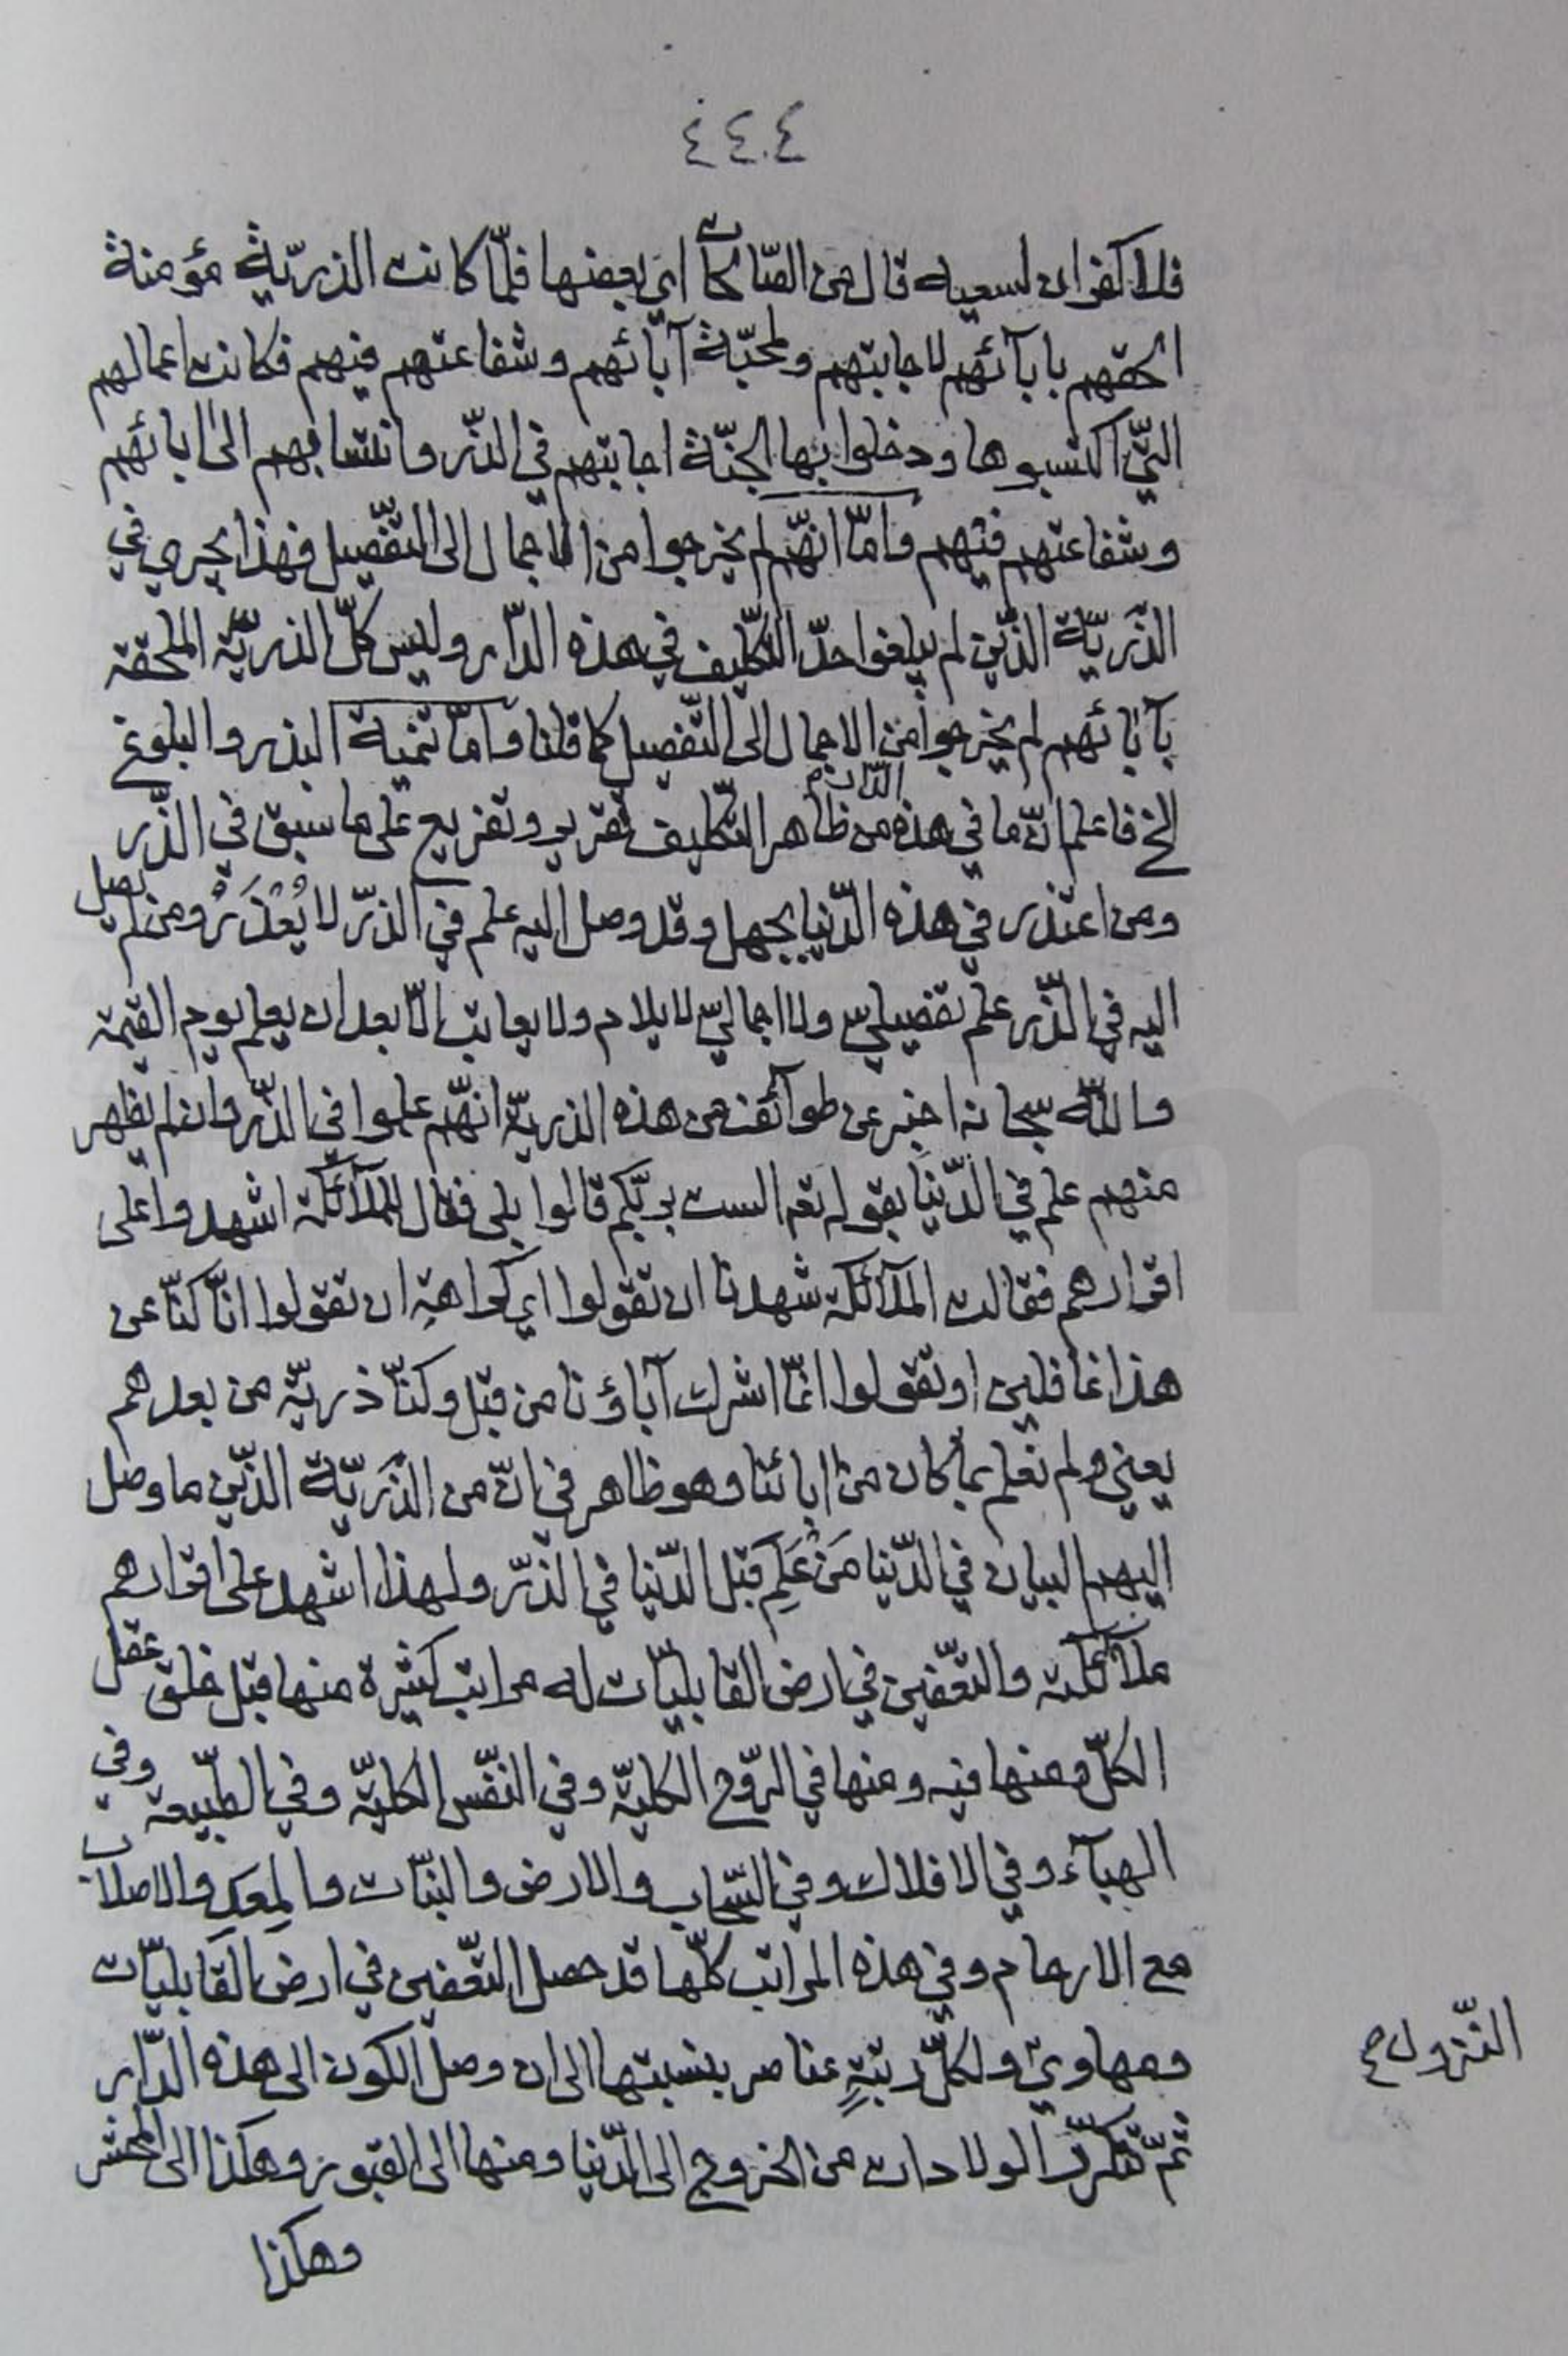 ٤٤٠٤
فلا كفران لسعيه قال من الصّالحات اي بعضها فلمّا كانت الذريّة مؤمنة
الحقهم بابآئهم لاجابتهم ولمحبّة آبآئهم وشفاعتهم فيهم فكانت اعمالهم
الّتي اكتسبوها ودخلوا بها الجنّة اجابتهم في الذّر وانتسابهم الى ابائهم
وشفاعتهم فيهم وامّا انهّم لم يخرجوا من الاجمال الى التّفصيل فهذا يجري في
الذّريّة الذّين لم يبلغوا حدّ التّكليف في هذه الدّار وليس كلّ الذريّة الملحقة
بآبائهم لم يخرجوا من الاجمال الى التّفصيل كما قلنا وامّا تنمية البذر والبلوغ
الخ فاعلم انّ ما في هذه الدّار من ظاهر التّكليف تقرير وتفريع على ما سبق في الذّر
ومن اعتذر في هذه الدّنيا بجهل وقد وصل اليه علم في الذرّ لا يُعْذَرُ ومن لم يصل
اليه في الذّر علم تفصيليّ ولا اجماليّ لا يلام ولا يعاتب الّا بعد ان يعلم يوم القيمة
والله سبحانه اخبر عن طوآئف من هذه الذريّة انهّم علموا في الذّر وان لم يظهر
منهم علم في الدّنيا بقوله تعه الست بربّكم قالوا بلى فقال للملآئكة اشهدوا على
اقرارهم فقالت الملآئكة شهدنا ان تقولوا اي كراهية ان تقولوا انّا كنّا عن
هذا غافلين او تقولوا انمّا اشرك آباؤنا من قبل وكنّا ذريّة من بعدهم
يعني ولم نعلم بما كان من ابائنا وهو ظاهر في انّ من الذّريّة الذّين ما وصل
اليهم البيان في الدّنيا مَنْ عَلِم قبل الدّنيا في الذرّ ولهذا اشهد على اقرارهم
ملآئكته والتعّفين في ارض القابليّات له مراتب كثيرة منها قبل خلق عقل
الكلّ ومنها فيه ومنها في الرّوح الكليّة وفي النّفس الكليّة وفي الطّبيعة وفي
الهبآء وفي الافلاك وفي السّحاب والارض والنّبات والمعد والاصلاب
مع الارحام وفي هذه المراتب كلّها قد حصل التعّفين في ارض القابليّات
ومهاوي النّزول ولكلّ رتبةٍ عناصر بنسبتها الى ان وصل الكون الى هذه الدّار
ثمّ تتكرّر الولادات من الخروج الى الدّنيا ومنها الى القبور وهكذا الى المحشر
وهكذا